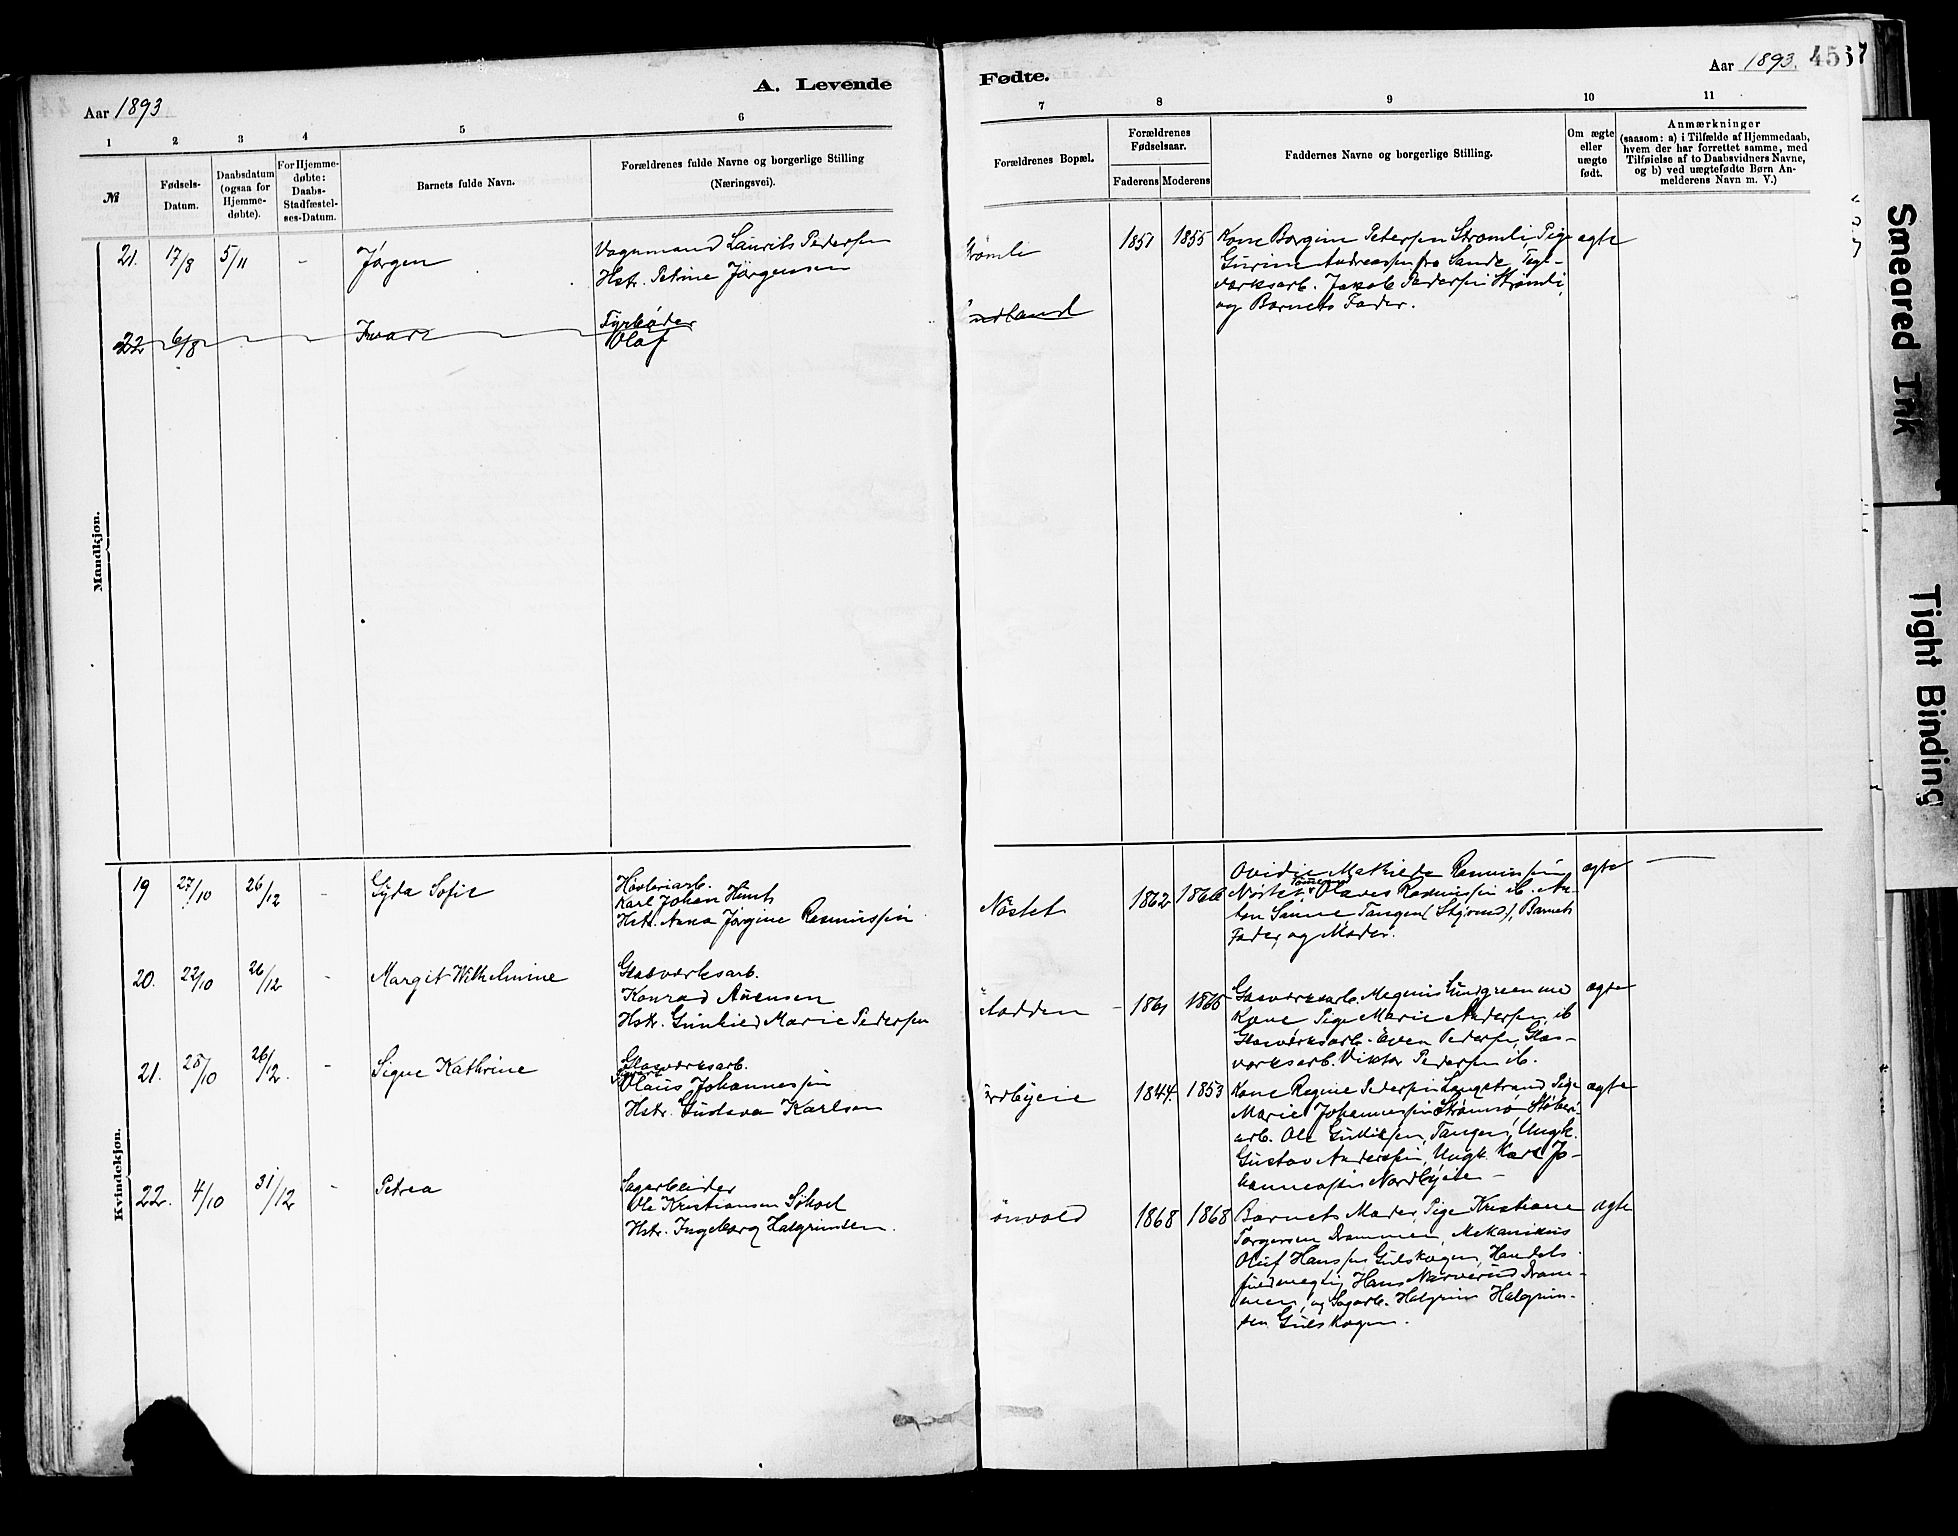 A. Levende
Fødte.
Aar 1893
Aar 1893.
4567
1 2 3 4 5 6
7 8 9 10 11
№
Fødsels-
Datum.
Daabsdatum
(ogsaa for
Hjemme-
døbte).
For Hjemme-
døbte:
Daabs-
Stadfæstel-
ses-Datum.
Barnets fulde Navn.
Forældrenes fulde Navne og borgerlige Stilling
(Næringsvei).
Forældrenes Bopæl.
Forældrenes
Fødselsaar.
Faderens Moderens
Faddernes Navne og borgerlige Stilling.
Om ægte
eller
uægte
født.
Anmærkninger
(saasom: a) i Tilfælde af Hjemmedaab,
hvem der har forrettet samme, med
Tilføielse af to Daabsvidners Navne,
og b) ved uægtefødte Børn An-
melderens Navn m. V.)
Mandkjøn.
21. 17/8 5/11 - Jørgen
Vognmand Laurits Pedersen
Hstr. Petrine Jørgensen
Strømli
1851 1855
Kone Borgine Petersen Strømli, Pige
Gurine Andreassen fra Sande, Tegl-
værksarb. Jakob Pedersen Strømli,
og Barnets Fader.
ægte
22 6/8 Ivar
Fyrbøder
Olaf
ndland
Kvindekjøn.
19 27/10 26/12 - Gyda Sofie
Høvleriarb.
Karl Johan Hunt
Hstr. Anna Jørgine Rasmussen
Nøstet
1862 1866
Ovidie Mathilde Rasmussen
Nøstet, Olaves Rasmussen ib. An-
ton Sanne, Tangen (Styrmd), Barnets
Fader og Moder.
ægte
20. 22/10 26/12 - Margit Wilhelmine
Glasværksarb.
Konrad Auensen
Hstr. Gunhild Marie Pedersen
odden
1861 1865
Glasværksarb. Magnus Lundgreen med
Kone Pige Marie Andersen, ib
Glasværksarb. Even Pedersen, Glas-
værksarb. Viktor Pedersen ib.
ægte
21. 25/10 26/12. - Signe Kathrine
Glasværksarb.
Olaus Johannessen
Hstr. Gustava Karlson
ordbyeie
1844. 1853
Kone Regine Pedersen Langstrand, Pige
Marie Johannessen Strømsø, Støberi
arb. Ole Gulliksen, Tangen, Ungk.
Gustav Andersen, Ungk. Karl Jo-
hannessen Nordbyeie -
ægte
22. 4/10 31/12 - Petrea
Sagarbeider
Ole Kristiansen Søhol
Hstr. Ingeborg Halgrimsen.
ønvold
1868 1868
Barnets Moder, Pige Kristiane
Torgersen Drammen, Mekanikus
Oluf Hanssen Gulskogen, Handels
fuldmægtig Hans Narverud Dram-
men, og Sagarb. Halgrim Halgrim-
sen Gulskogen.
ægte
Smeared Ink
Tight Binding